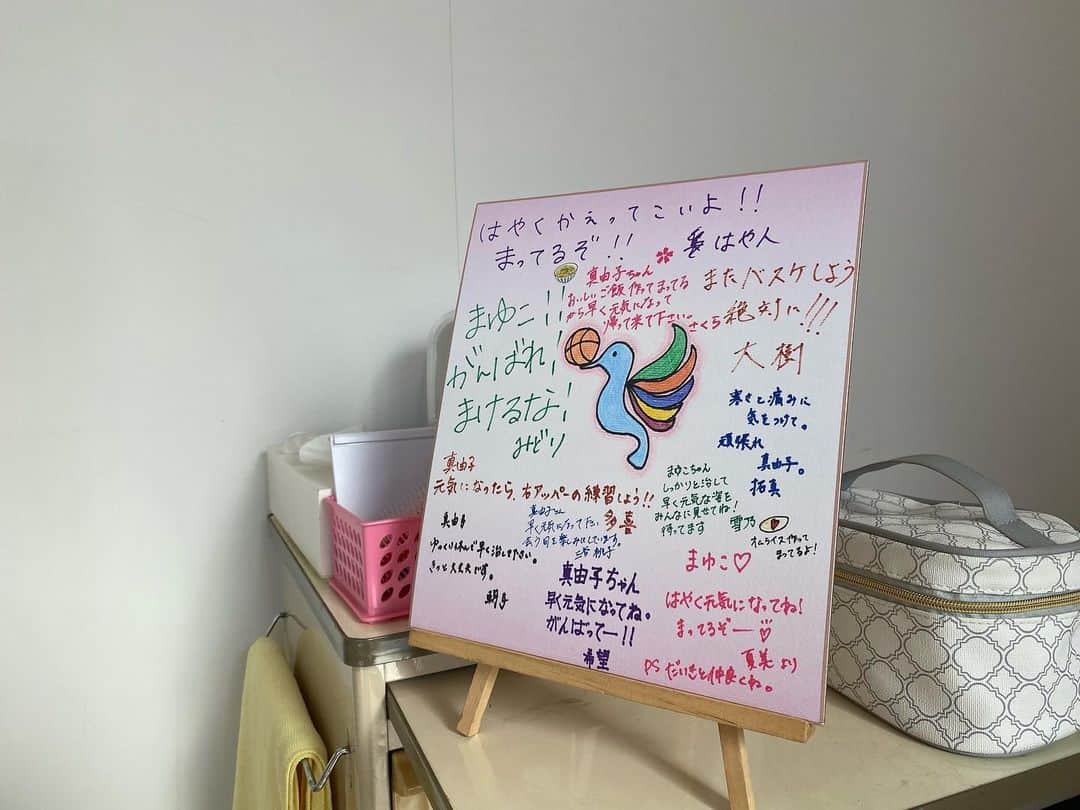 はやくかえってこいよ!!
まってるぞ!! はや人
真由子ちゃん
おいしいご飯作ってまってる
から早く元気になって
帰って来て下さい。さくら
またバスケしよう
絶対に!!!
大樹
まゆこ!!
がんばれ!
まけるな!
みどり
寒さと痛みに
気をつけて。
頑張れ
真由子。
拓真
真由子
元気になったら、右アッパーの練習しよう!!
多喜
まゆこちゃん
しっかりと治して
早く元気な姿を
みんなに見せてね!
待ってます 雪乃
オムライス作って
まってるよ!
真由子
ゆっくり休んで早く治して下さい。
きっと大丈夫です。
真由子さん
早く元気になって下さい
会う日を楽しみにしています。
真由子ちゃん
早く元気になってね。
がんばってー!!
希望
まゆこ♡
はやく元気になってね!
まってるぞー♡
夏美より
PS だいきと仲良くね。